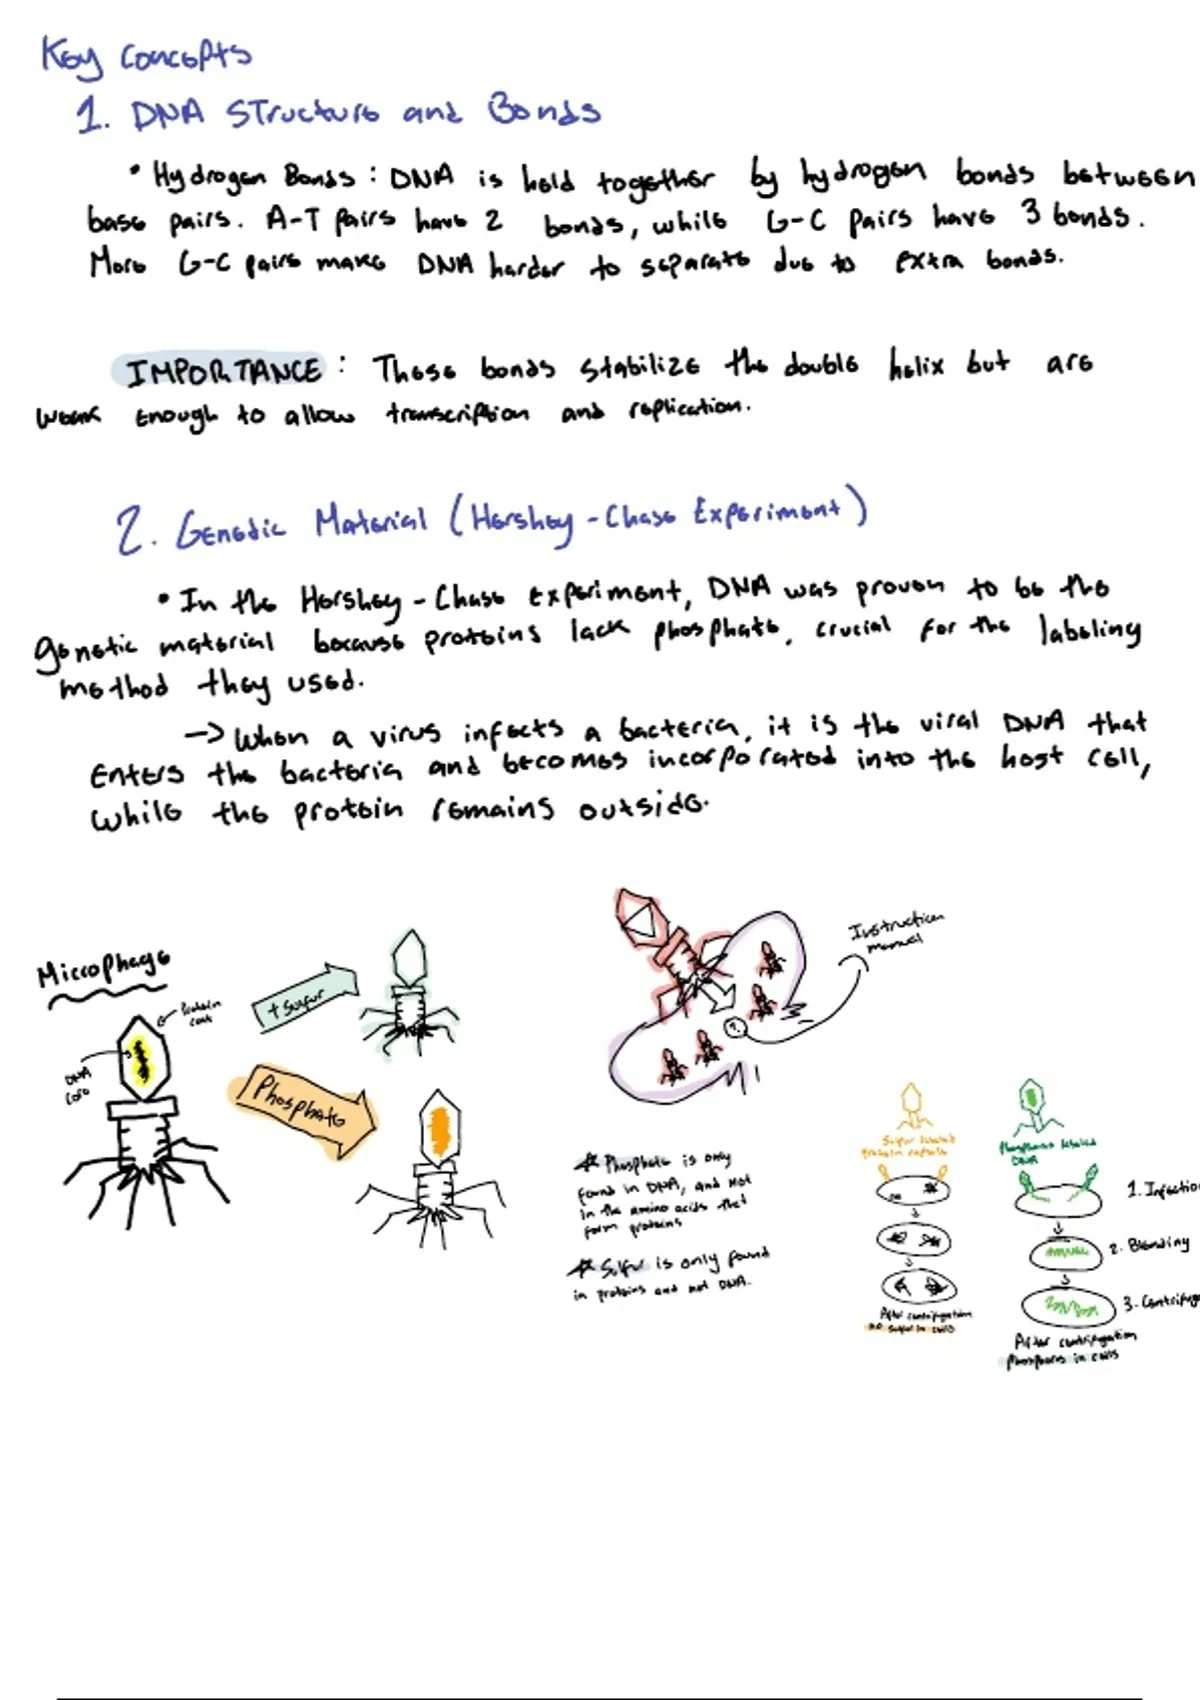 Key Concepts
1. DNA Structure and Bonds
• Hydrogen Bonds: DNA is held together by hydrogen bonds between
base pairs. A-T pairs have 2 bonds, while G-C pairs have 3 bonds.
More G-C pairs make DNA harder to separate due to extra bonds.
IMPORTANCE: These bonds stabilize the double helix but are
weak enough to allow transcription and replication.
2. Genetic Material (Hershey-Chase Experiment)
• In the Hershey-Chase experiment, DNA was proven to be the
genetic material because proteins lack phosphate, crucial for the labeling
method they used.
-> When a virus infects a bacteria, it is the viral DNA that
enters the bacteria and becomes incorporated into the host cell,
while the protein remains outside.
Microphage
Protein coat
DNA core
+ Sulfur
Phosphate
Instruction
manual
* Phosphate is only
found in DNA, and not
in the amino acids that
form proteins
* Sulfur is only found
in proteins and not DNA.
Sulfur labeled
protein capsule
After centrifugation
no sulfur in cells
Phosphorus labeled
DNA
1. Infection
2. Blending
3. Centrifuge
After centrifugation
phosphorus in cells